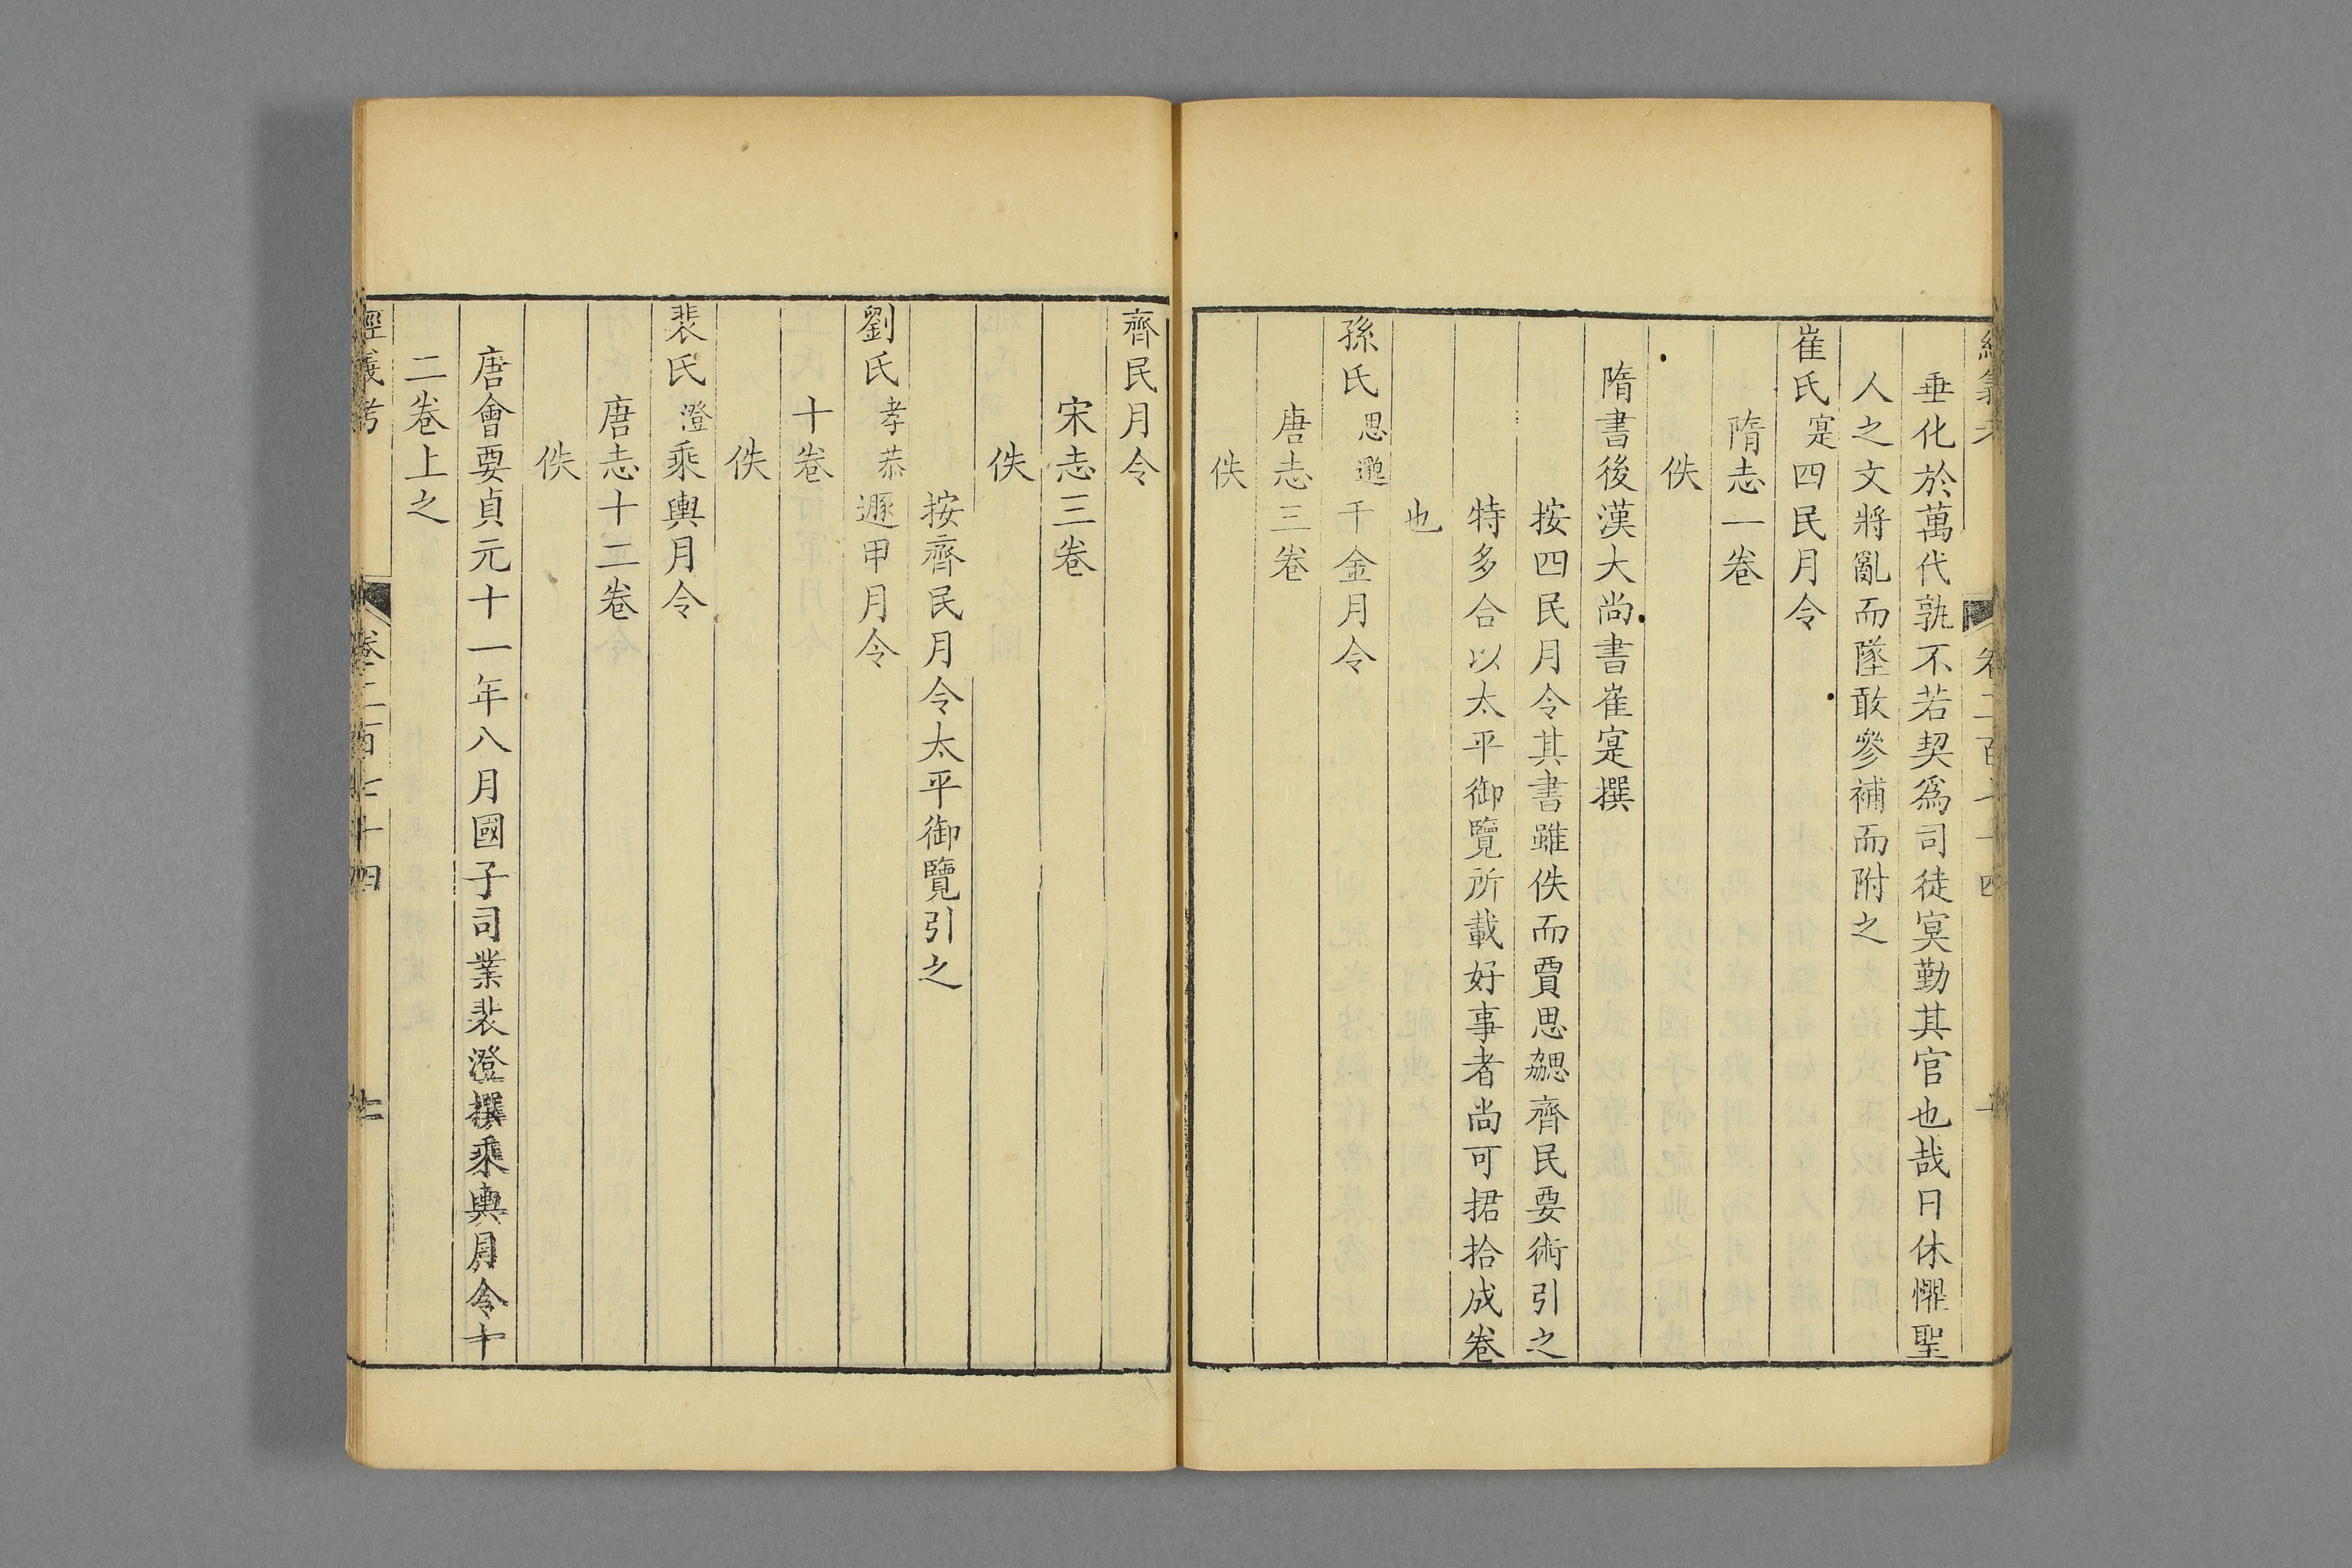 垂化於萬代孰不若契爲司徒冥勤其官也哉日休懼聖
人之文將亂而墜敢參補而附之
崔氏寔四民月令
隋志一卷
佚
隋書後漢大尚書崔寔撰
按四民月令其書雖佚而賈思勰齊民要術引之
特多合以太平御覽所載好事者尚可捃拾成卷
也
孫氏思邈千金月令
唐志三卷
佚
齊民月令
宋志三卷
佚
按齊民月令太平御覽引之
劉氏孝恭遯甲月令
十卷
佚
裴氏澄乘輿月令
唐志十二卷
佚
唐會要貞元十一年八月國子司業裴澄撰乘輿月令十
二卷上之
經義考 卷二百七十四